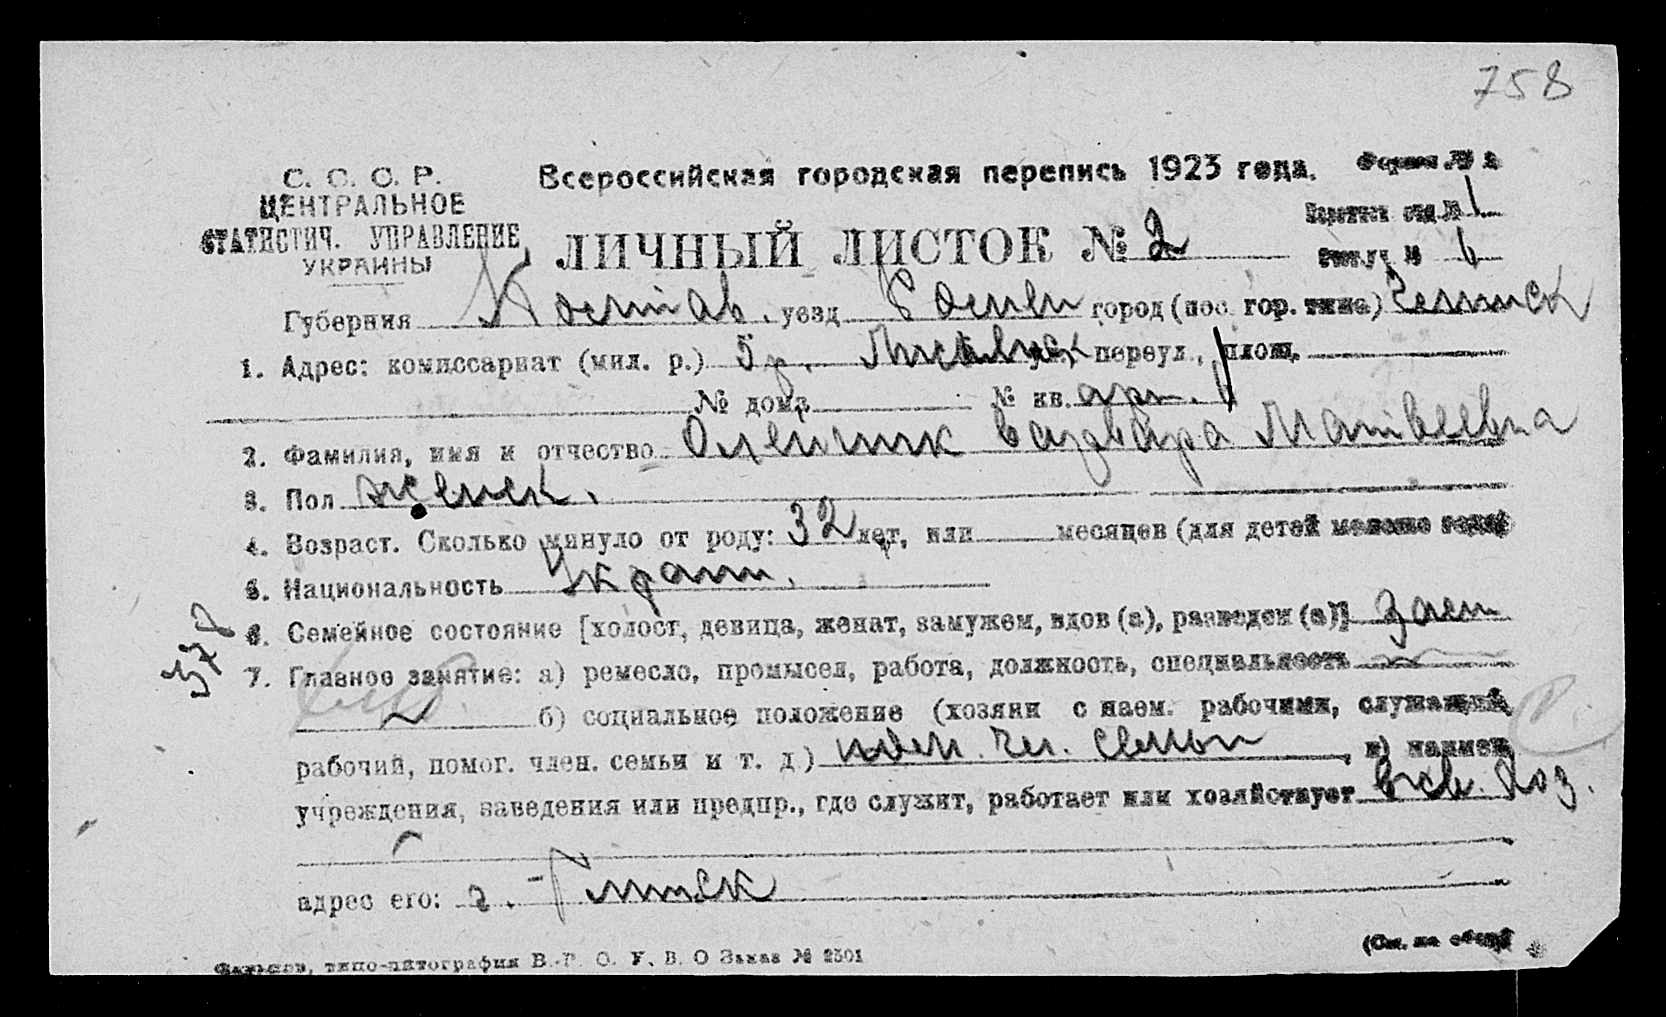 758
С. С. С. Р.
ЦЕНТРАЛЬНОЕ
СТАТИСТИЧ. УПРАВЛЕНИЕ
УКРАИНЫ
Всероссийская городская перепись 1923 года.
Форма № 2
ЛИЧНЫЙ ЛИСТОК № 2
отд. № 1
№ 6
Губерния Полтав. уезд Ромен город (пос. гор. типа) Глинск
1. Адрес: комиссариат (мил. р.) 5 р. переул., площ.
№ дома № кв.
2. Фамилия, имя и отчество Олейник Матвеевна
3. Пол женск.
4. Возраст. Сколько минуло от роду: 32 лет, или месяцев (для детей моложе года)
5. Национальность Украин.
6. Семейное состояние [холост, девица, женат, замужем, вдов (а), разведен (а)] зам
578
7. Главное занятие: а) ремесло, промысел, работа, должность, специальность
б) социальное положение (хозяин с наем. рабочими, служащий,
рабочий, помог. член. семьи и т. д.) пом. чл. семьи, в) наимен.
учреждения, заведения или предпр., где служит, работает или хозяйствует в св. хоз.
адрес его: г. Глинск
(См. на обор.)
Харьков, типо-литография В. О Заказ № 2501